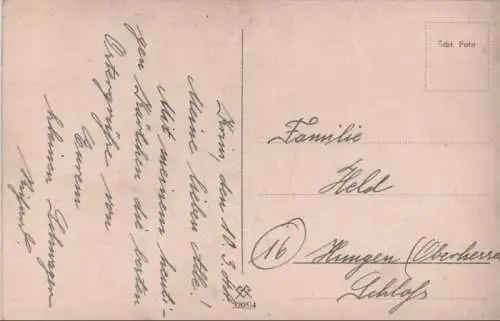 den 10. 3. 48.
Meine lieben Alle!
Mit meinem heuti-
gen Kärtchen die besten
Ostergrüße von
Eurem
kleinen
Echt Foto
Familie
Held
16
Hungen (Oberhessen
Schloß